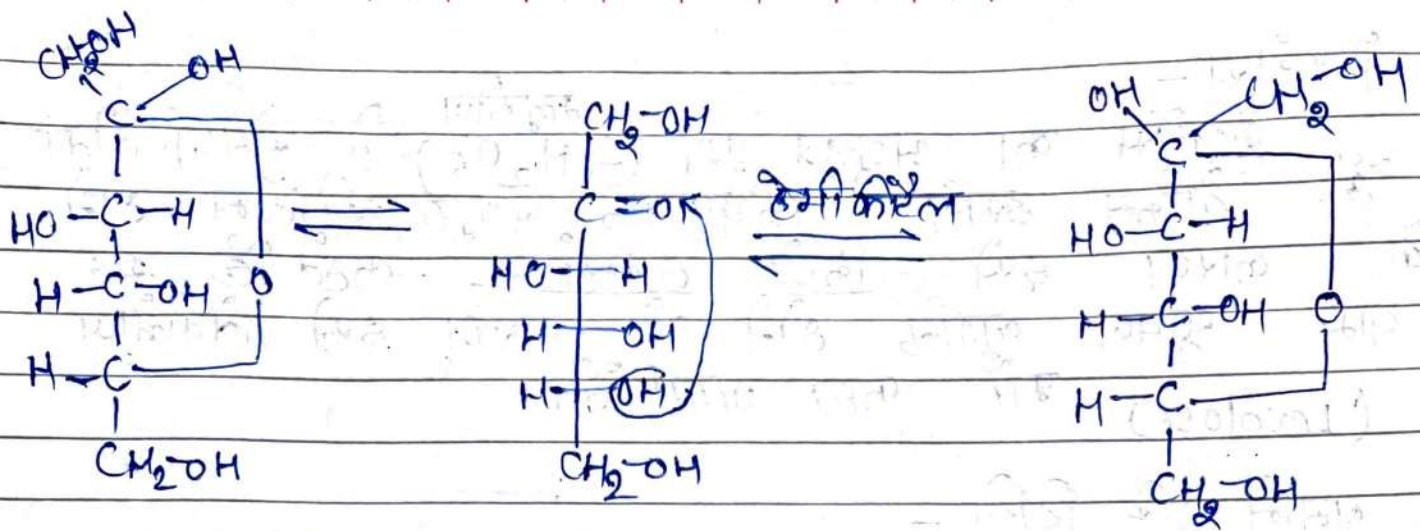 CH2OH OH
C
HO-C-H
H-C-OH O
H-C
CH2-OH
CH2-OH
C=O
HO H
H OH
H OH
CH2-OH
हेमीकीटैल
OH CH2-OH
C
HO-C-H
H-C-OH O
H-C
CH2-OH